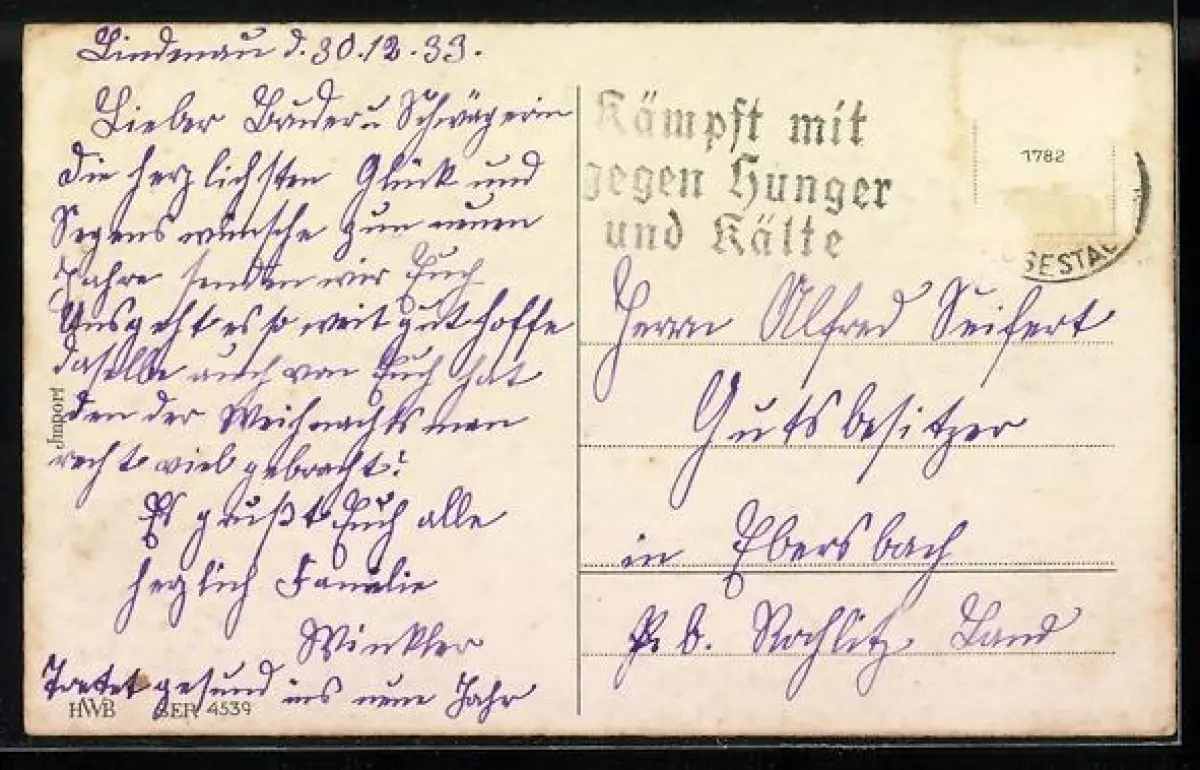 Lindenau d. 30.12.33.
Lieber Bruder u Schwägerin
die herzlichsten Glück und
Segenswünsche zun neuen
Jahre senden wir Euch
Uns geht es so weit gut hoffe
dasselbe auch von Euch hat
den der Weihnachtsman
recht viel gebracht?
Es grüßt Euch alle
herzlich Familie
Winkler
Tretet gesund ins neue Jahr
Import
HWB SER 4539
Kämpft mit
gegen Hunger
und Kälte
1782
SESTAL
Herrn Alfred Seifert
Gutsbesitzer
in Ebersbach
b. Rochlitz Land